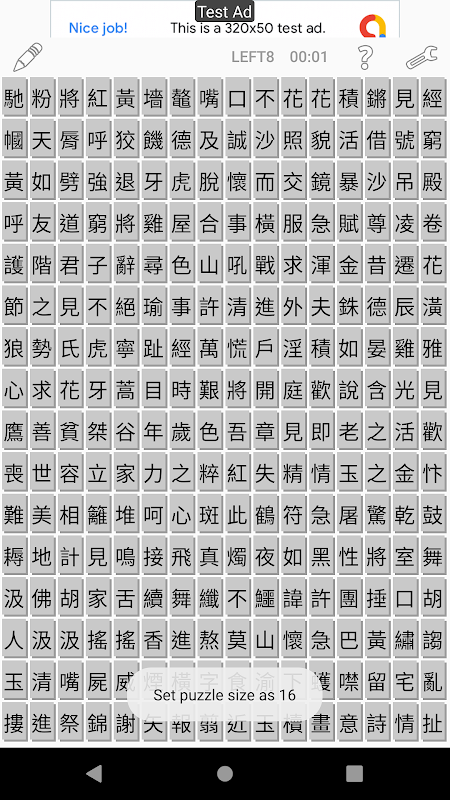 Test Ad
Nice job! This is a 320x50 test ad.
LEFT8 00:01
馳粉將紅黃墻鼇嘴口不花花積鏘見經
幗天脣呼狡饑德及誠沙照貌活借號窮
黃如劈強退牙虎脫懷而交鏡暴沙吊殿
呼友道窮將雞屋合事橫服急賦尊凌卷
護階君子辭尋色山吼戰求渾金昔遷花
節之見不絕瑜事許清進外夫銖德辰潢
狼勢氏虎寧趾經萬慌戶淫積如晏雞雅
心求花牙蒿目時艱將開庭歡說含光見
鷹善貧桀谷年歲色吾章見即老之活歡
喪世容立家力之粹紅失精情玉之金忭
難美相籬堆呵心斑此鶴符急屠驚乾鼓
耨地計見鳴接飛真燭夜如黑性將室舞
汲佛胡家舌續舞纖不鱷諱許團捶口胡
人汲汲搖搖香進熬莫山懷急巴黃繡謅
玉清嘴屍威煙橫字食渝下護噤留宅亂
Set puzzle size as 16
摟進祭錦謝矢報弱近玉橫畫意詩情扯